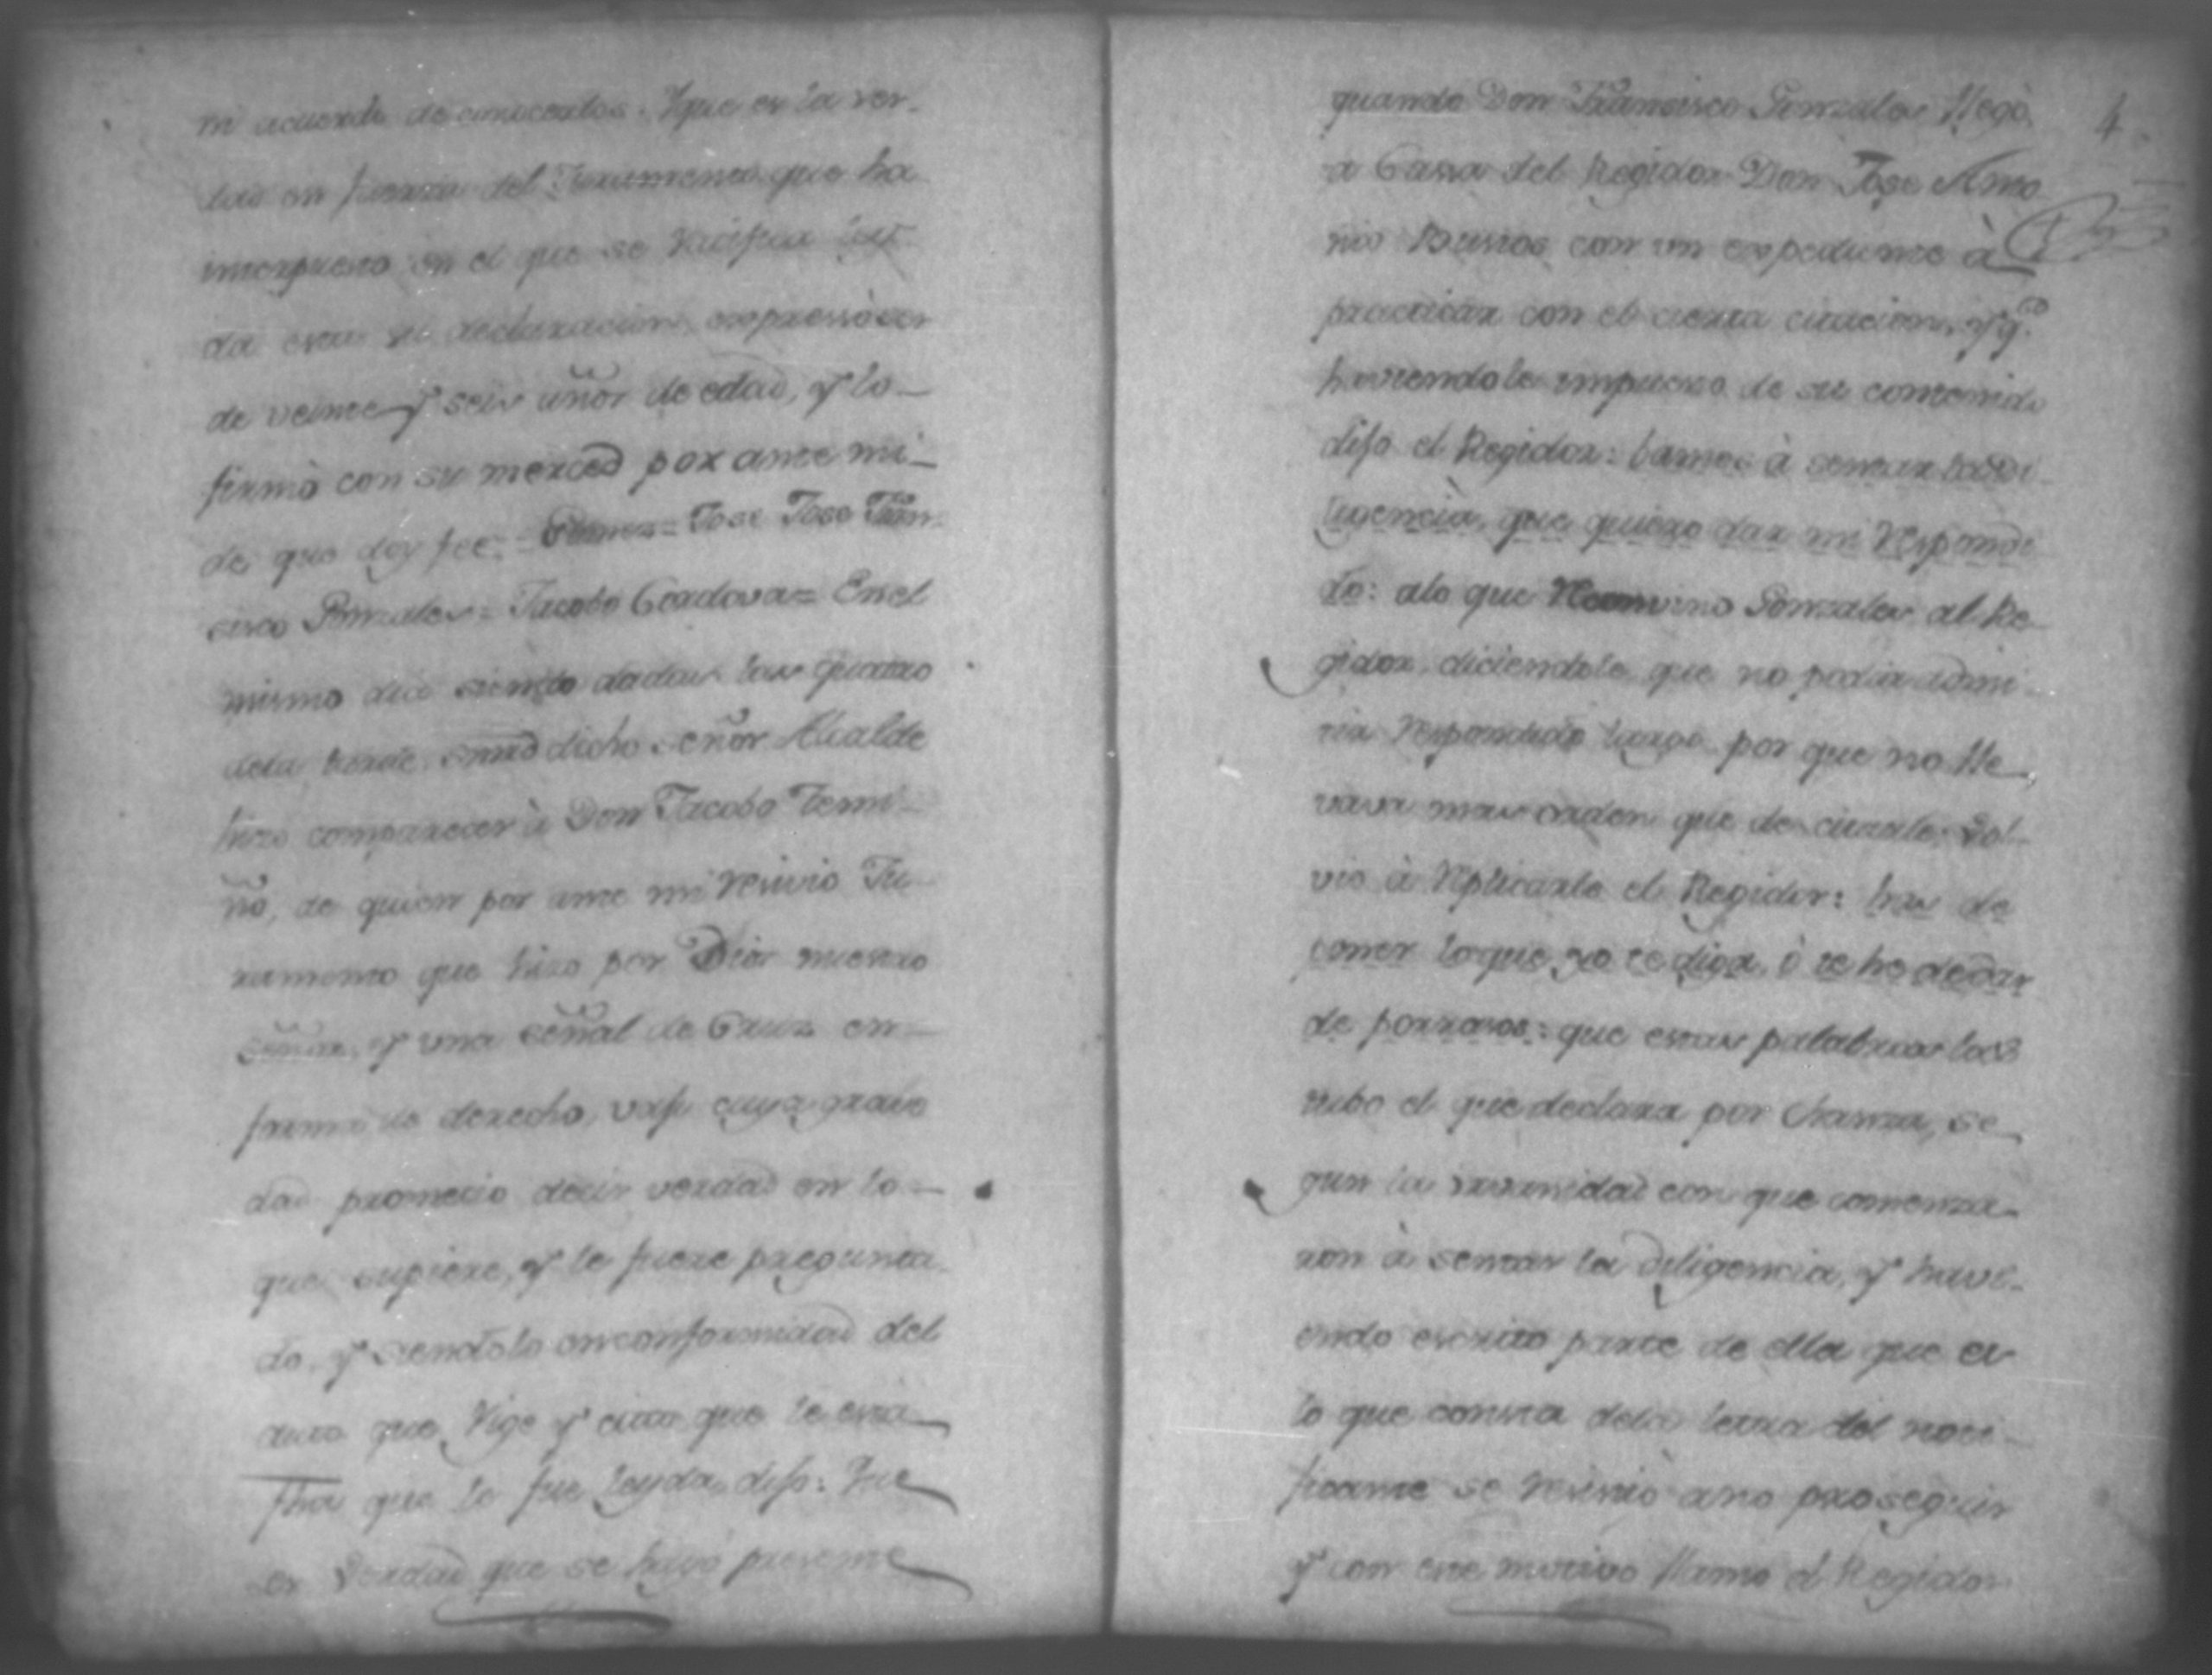 mi acuerdo de conocerlos. Yque es la ver-
dad en fuerza del Juramento que ha
interpuesto en el que se ratifica leý-
da esta su declaracion, expressò ser
de veinte y seis años de edad, y lo-
firmò con su merced por ante mi-
de que doy fee = Jose Jose Fran-
sisco Gonzales = Jacobo Cordova = Enel
mismo dia siendo dadas las quatro
dela tarde smrd dicho señor Alcalde
hizo comparecer à Don Jacobo Temi-
ño, de quien por ante mi resivio Ju-
ramento que hizo por Dios nuestro
señor, y una señal de Cruz en-
forma de derecho, vajo cuya grave
dad prometio decir verdad en lo-
que supiere, y le fuere pregunta-
do, y siendolo enconformidad del
auto que rige y cita que le está
fha que le fue leyda, dijo: Que
es verdad que se halló presente
quando Don Francisco Gonzales llegò 4.
a Cassa del Regidor Don Jose Anto
nio Bustos con un expediente à
practicar con el cierta citacion, y q.e
haviendole impuesto de su contenido
dijo el Regidor: bamos à sentar la di-
ligencia, que quiero dar mi respondi-
do: alo que reconvino Gonzales al Re-
gidor, diciendole que no podia admi-
tir respondido largo por que no lle-
vava mas orden que de citarle: vol-
vio à replicarle el Regidor: has de
poner loque yo te diga, ò te he dedar
de porrasos: que estas palabras las
tubo el que declara por chanza, se-
gun la urbanidad con que comenza-
ron à sentar la diligencia, y havi-
endo escrito parte de ella que es
lo que consta dela letra del noti-
ficante se resistiò ano proseguir
y con este motivo llamo el Regidor